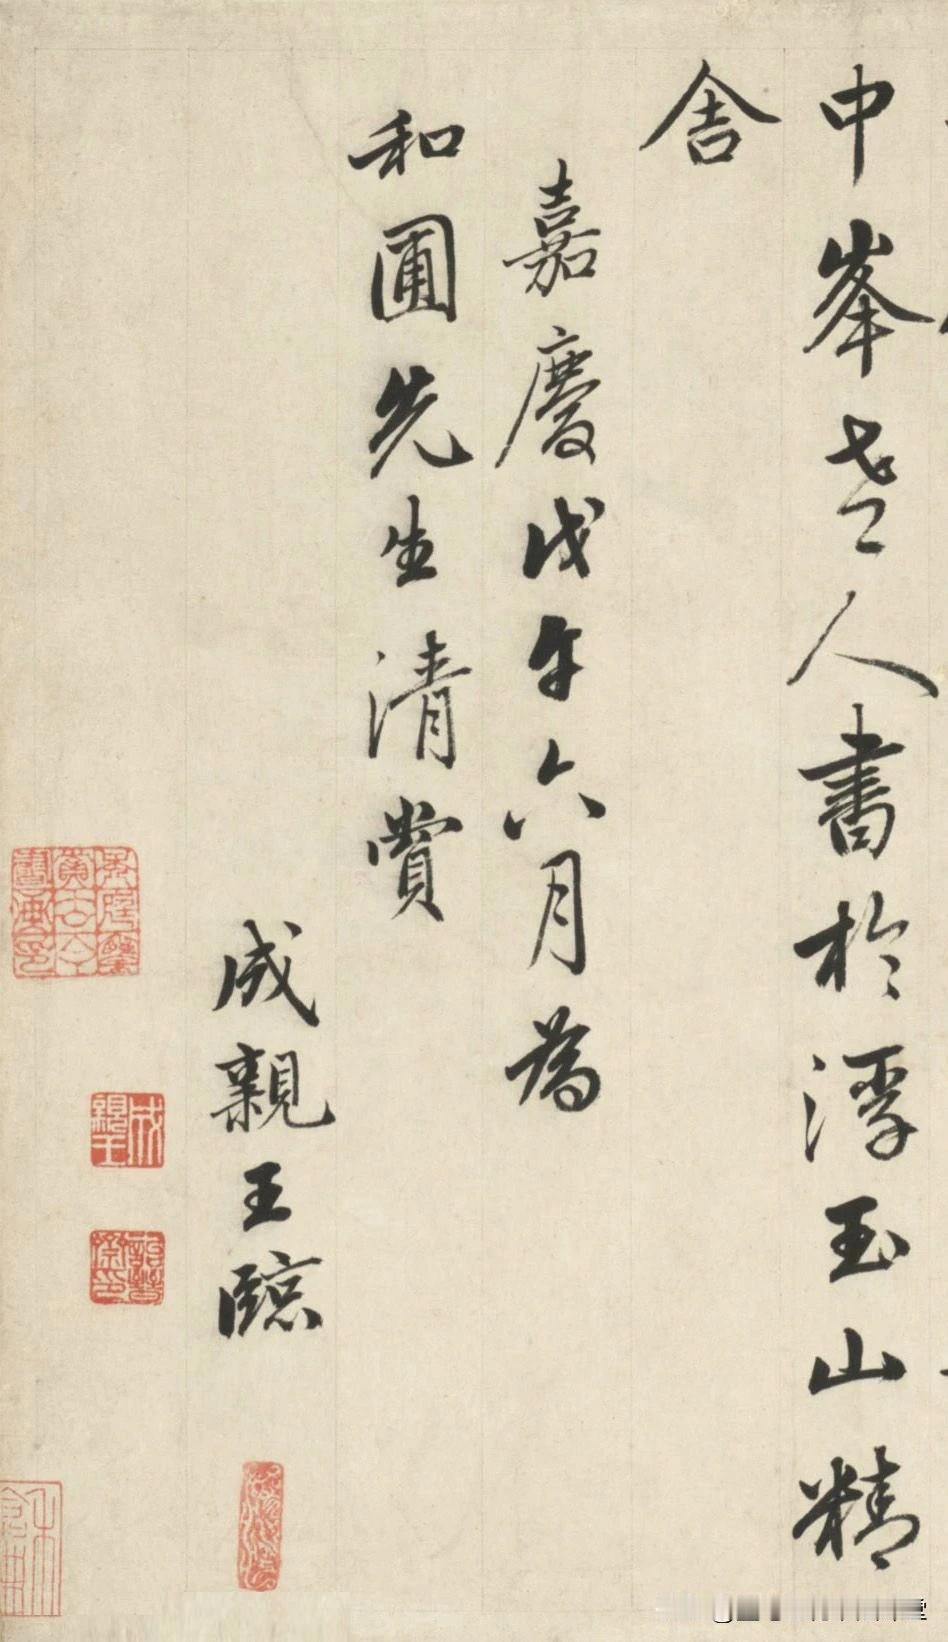 中峯老人書於浮玉山精
舍
嘉慶戊午六月為
和圃先生清賞
成親王臨
成親王
詒晉齋印